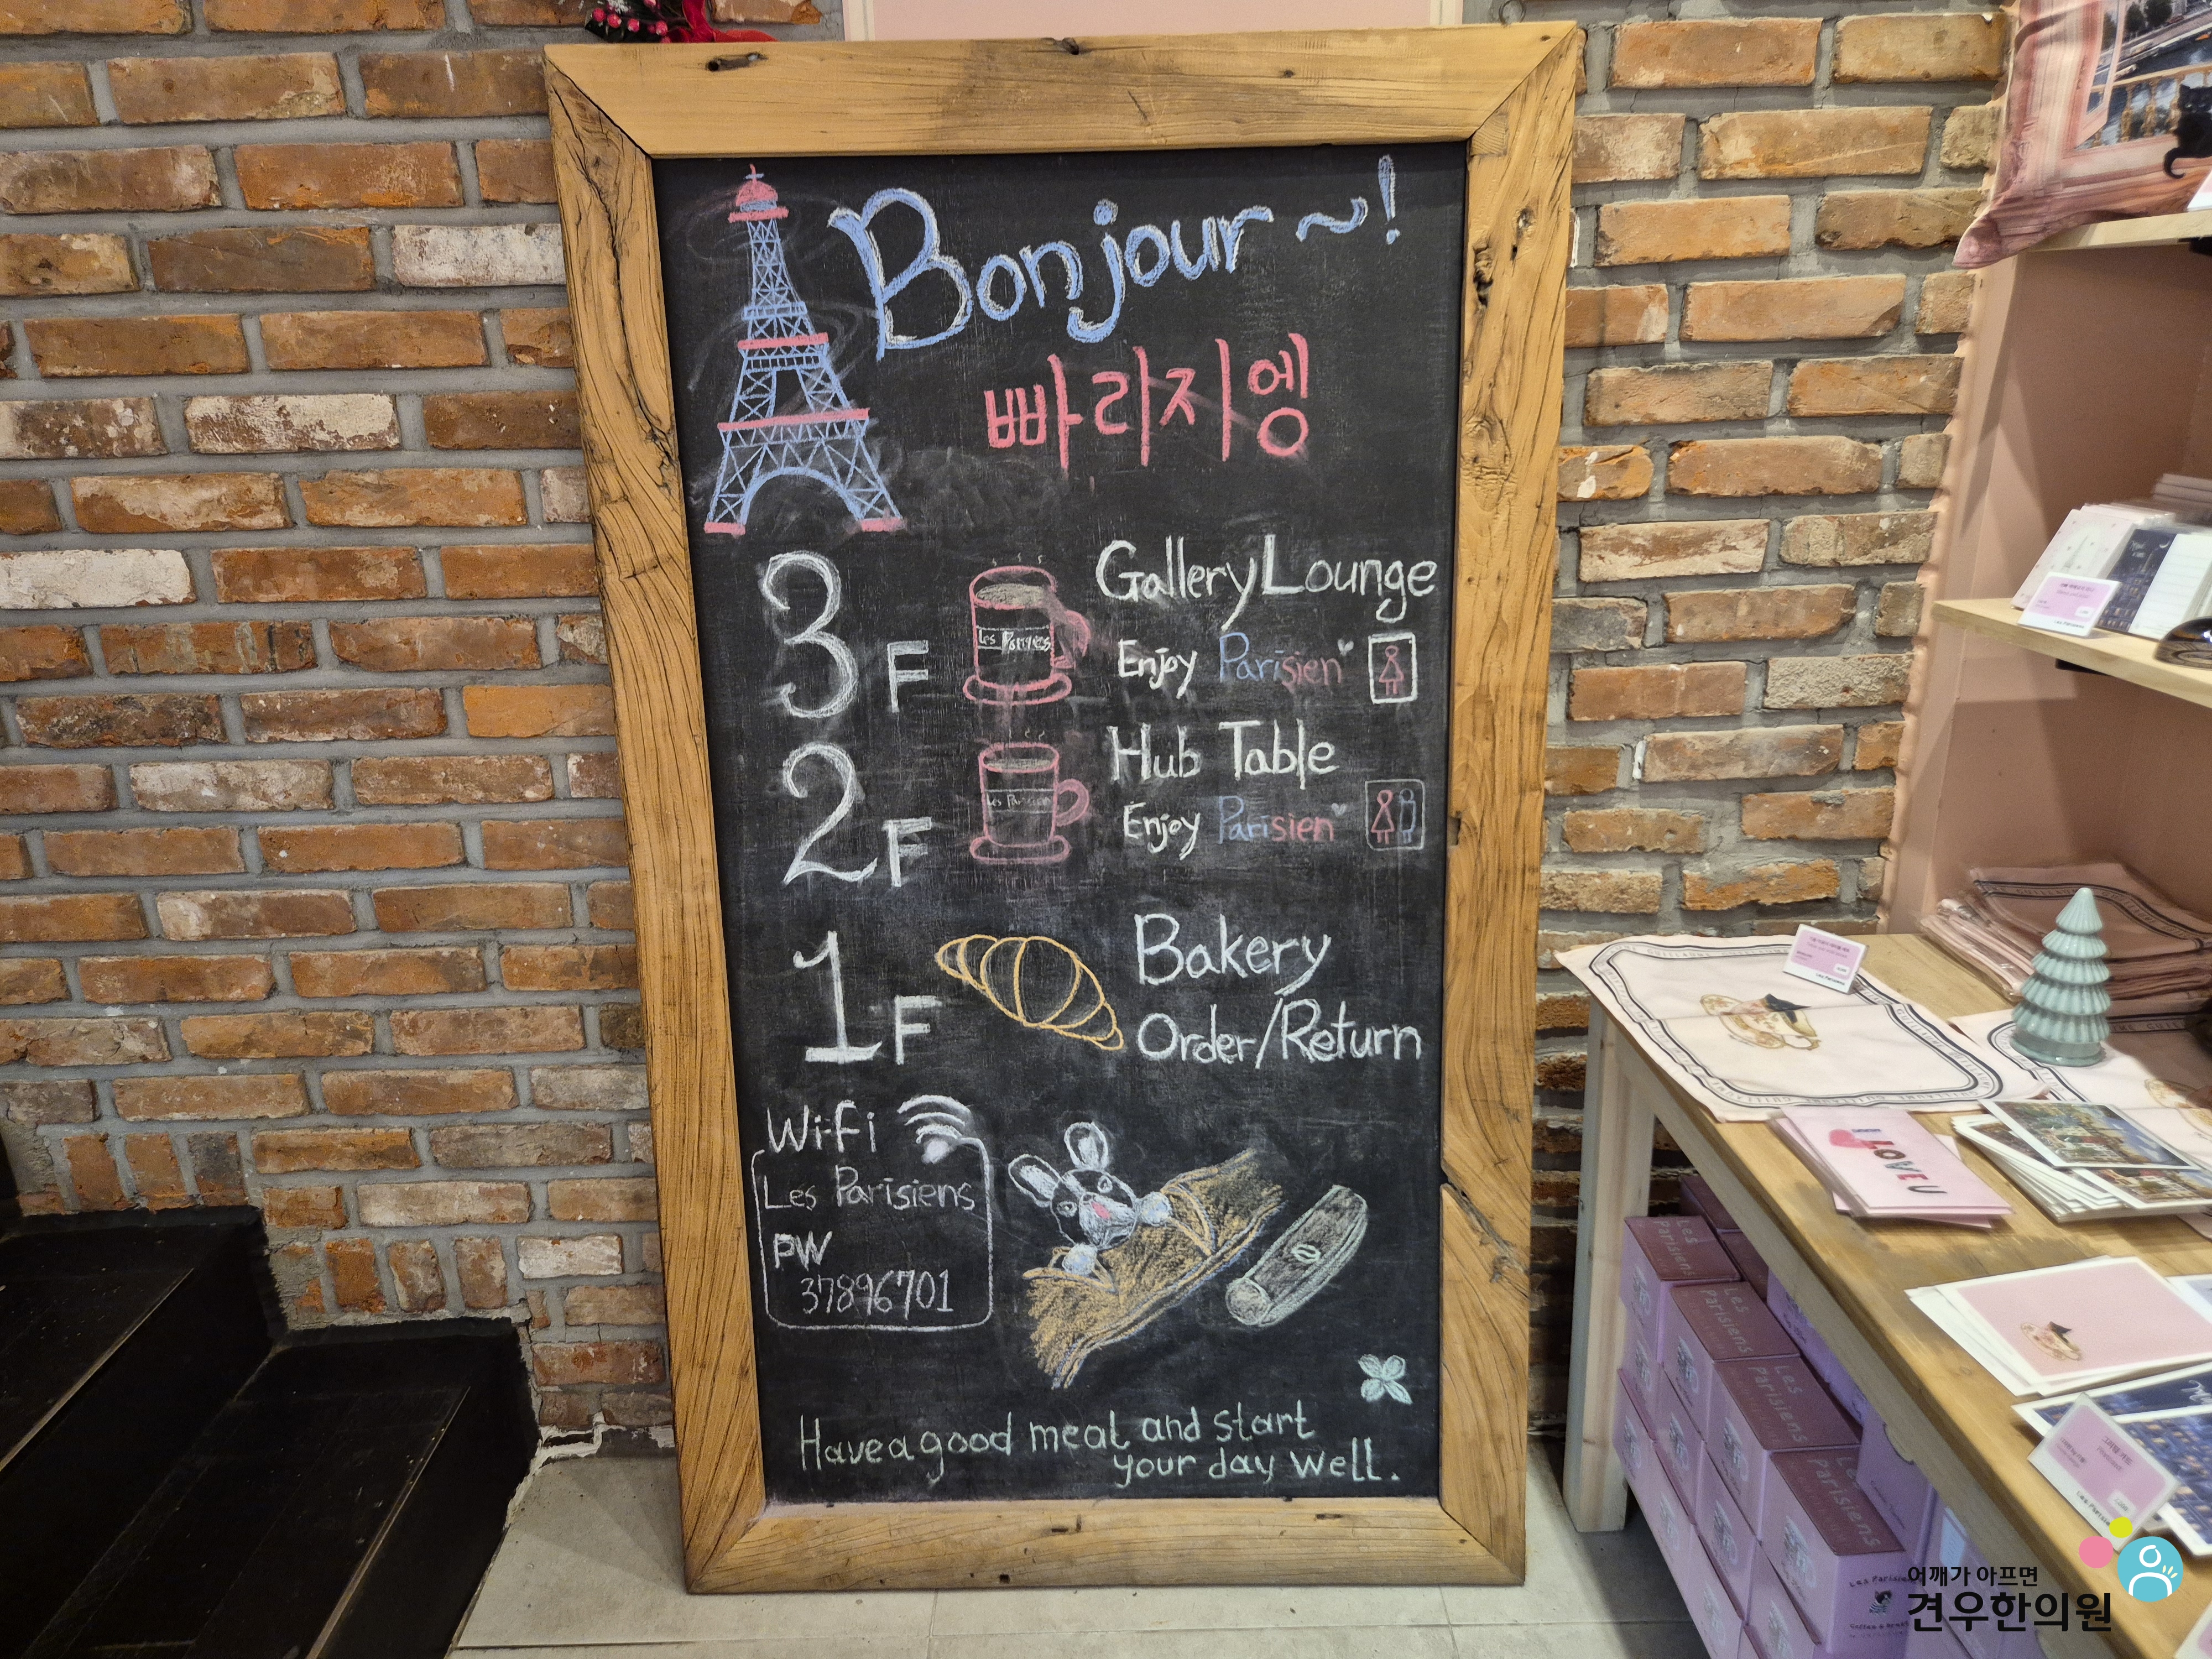 Bonjour ~!
빠리지엥
3F
Les Parisiens
Gallery Lounge
Enjoy Parisien
2F
Les Parisien
Hub Table
Enjoy Parisien
1F
Bakery
Order/Return
Wi-fi
Les Parisiens
PW
37896701
Have a good meal and start
your day well.
GUILLAUME
I LOVE U
Les Parisiens
Les Parisiens
Les Parisiens
Les Parisiens
어깨가 아프면
견우한의원